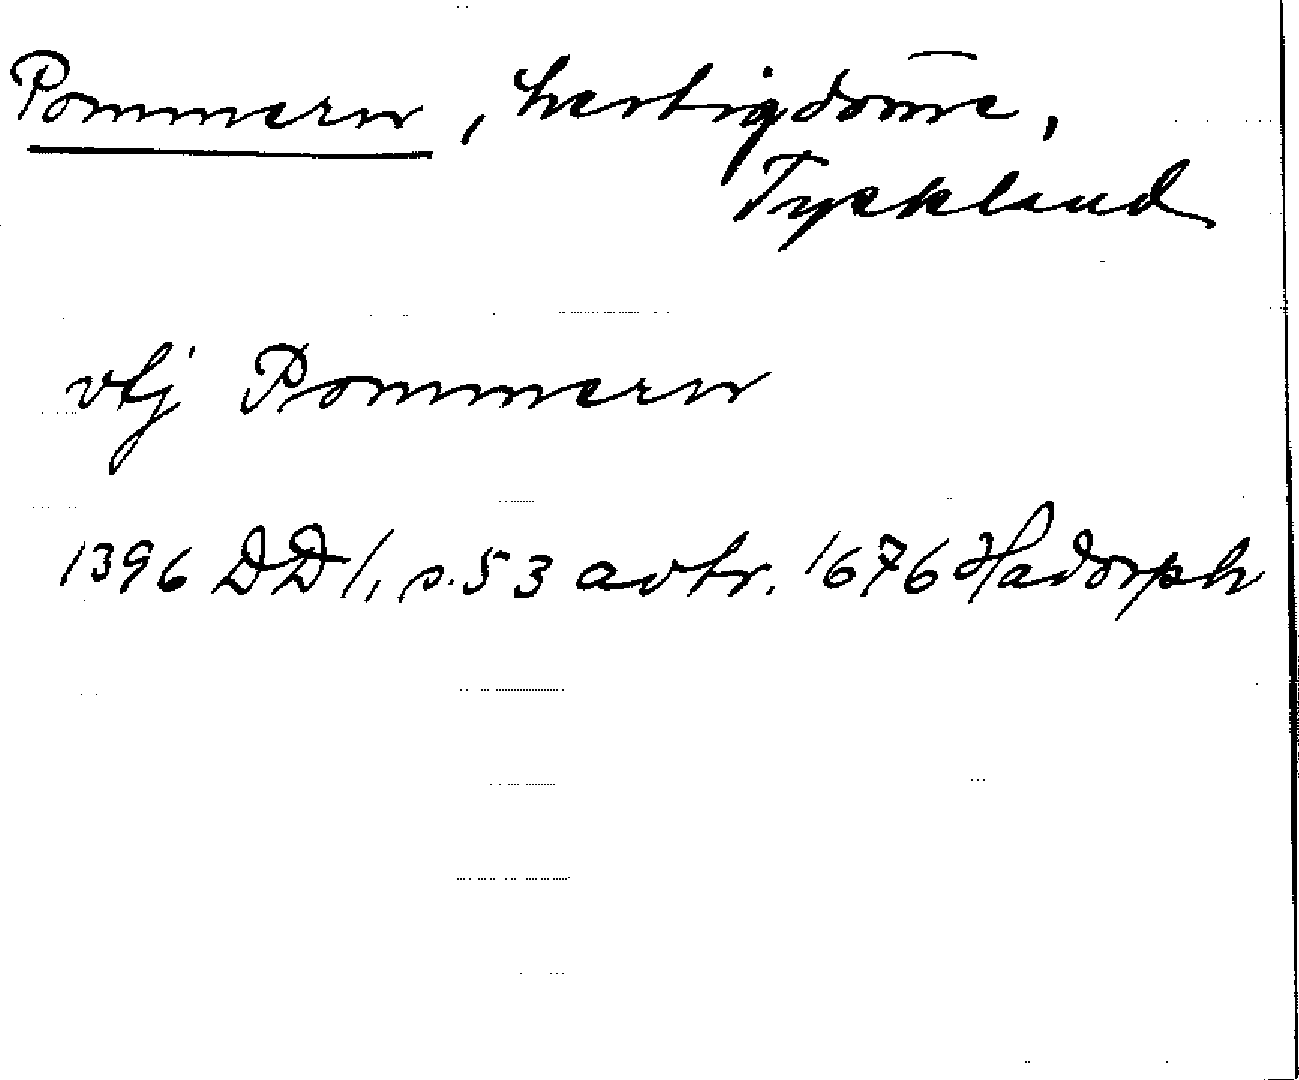 Pommern, hertigdöme,
Tyskland
vtj Pommern
1396 DD 1, s. 53 avtr. 1676 Hadorph